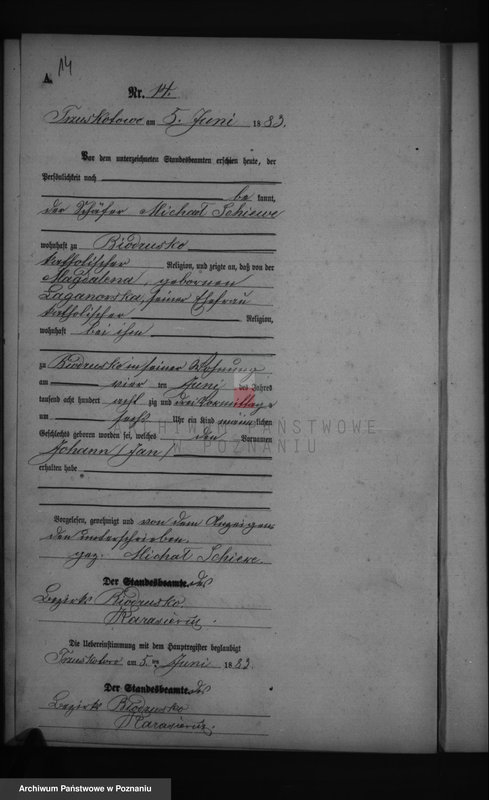 A. 14
Nr. 14.
Truskotowo am 5. Juni 1883.
Vor dem unterzeichneten Standesbeamten erschien heute, der
Persönlichkeit nach
be kannt,
der Schäfer Michał Schiewe
wohnhaft zu Biedrusko
katholischer Religion, und zeigte an, daß von der
Magdalena, gebornen
Łaganowska, seiner Ehefrau
katholischer Religion,
wohnhaft bei ihm
zu Biedrusko in seiner Wohnung
am vier ten Juni des Jahres
tausend acht hundert zig und drei Vormittags
um sechs Uhr ein Kind männlichen
Geschlechts geboren worden sei, welches den Vornamen
Johann /Jan/
erhalten habe
ARCHIWUM PAŃSTWOWE
W POZNANIU
Vorgelesen, genehmigt und von dem Anzeigen
den unterschrieben.
gez. Michał Schiewe.
Der Standesbeamte. des
Bezirks Biedrusko.
Karasiewicz.
Die Uebereinstimmung mit dem Hauptregister beglaubigt
am 5. ten Juni 1883.
Der Standesbeamte. des
Bezirks Biedrusko
Karasiewicz.
Archiwum Państwowe w Poznaniu